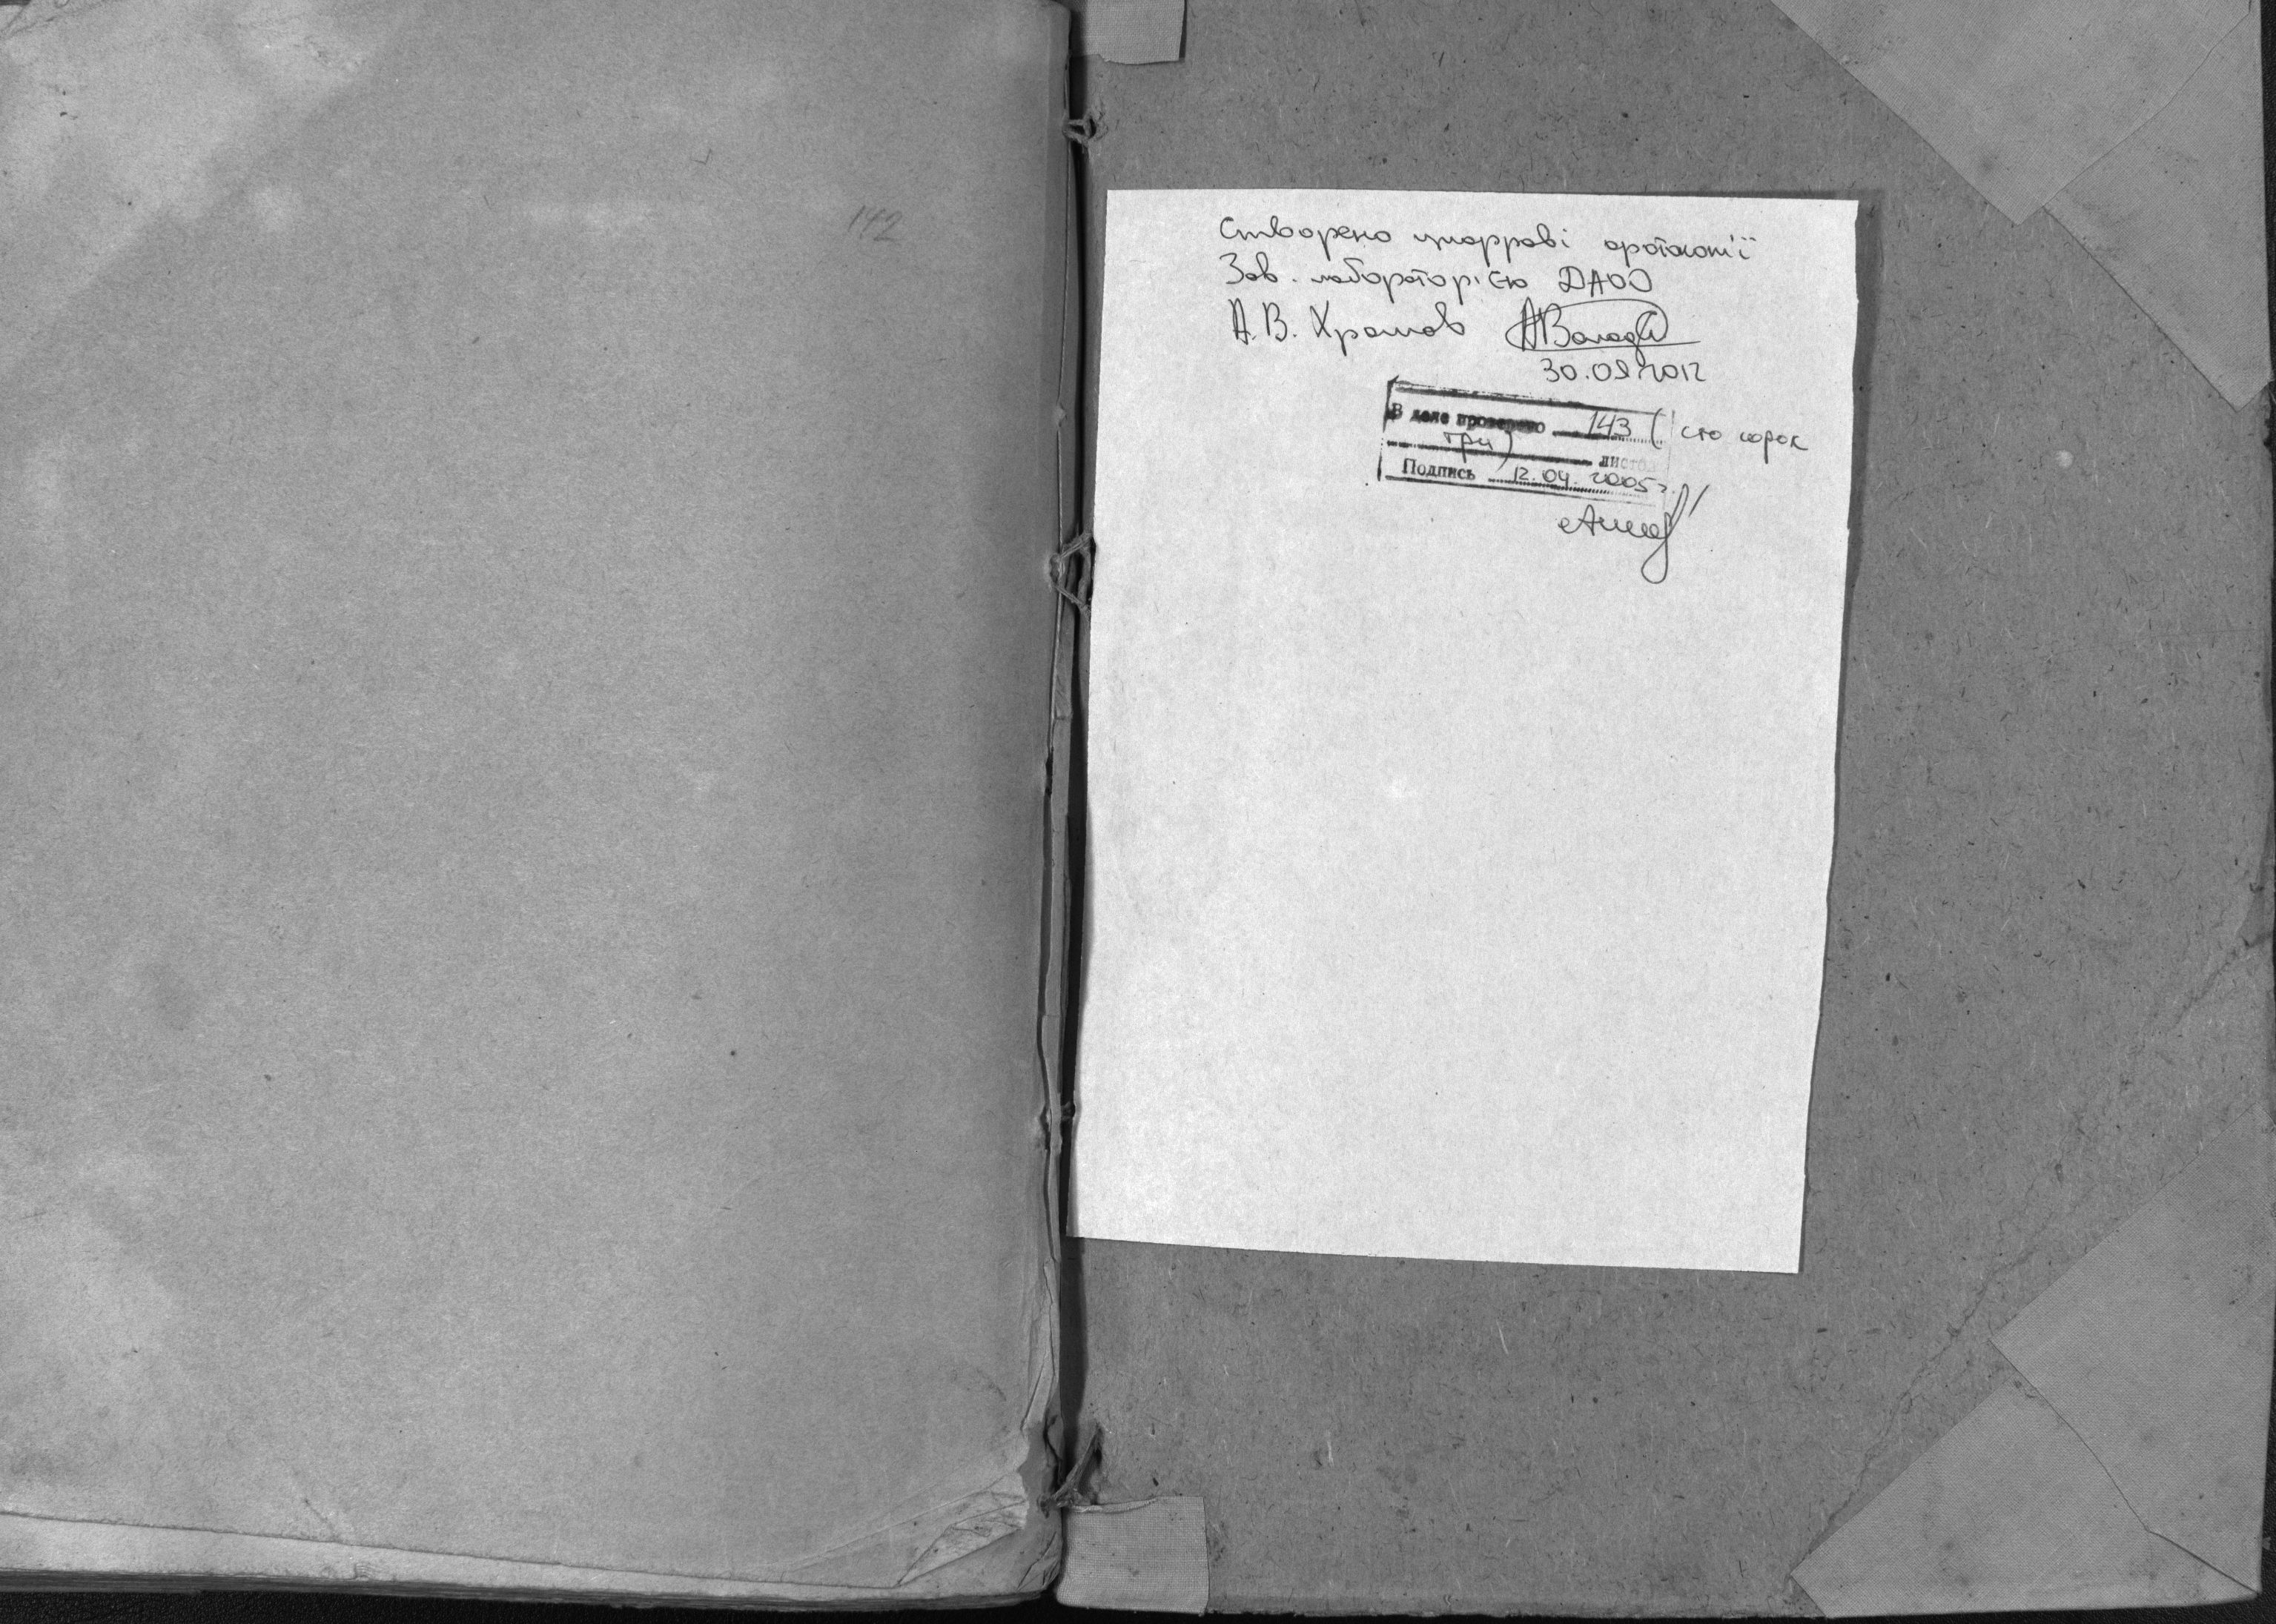 142
Створено цифрові фотокопії
Зав. лабораторією ДАОО
А.В. Храмов
30.08.2012
В деле проверено 143 (сто сорок
три) листов
Подпись 12.04.2005г.